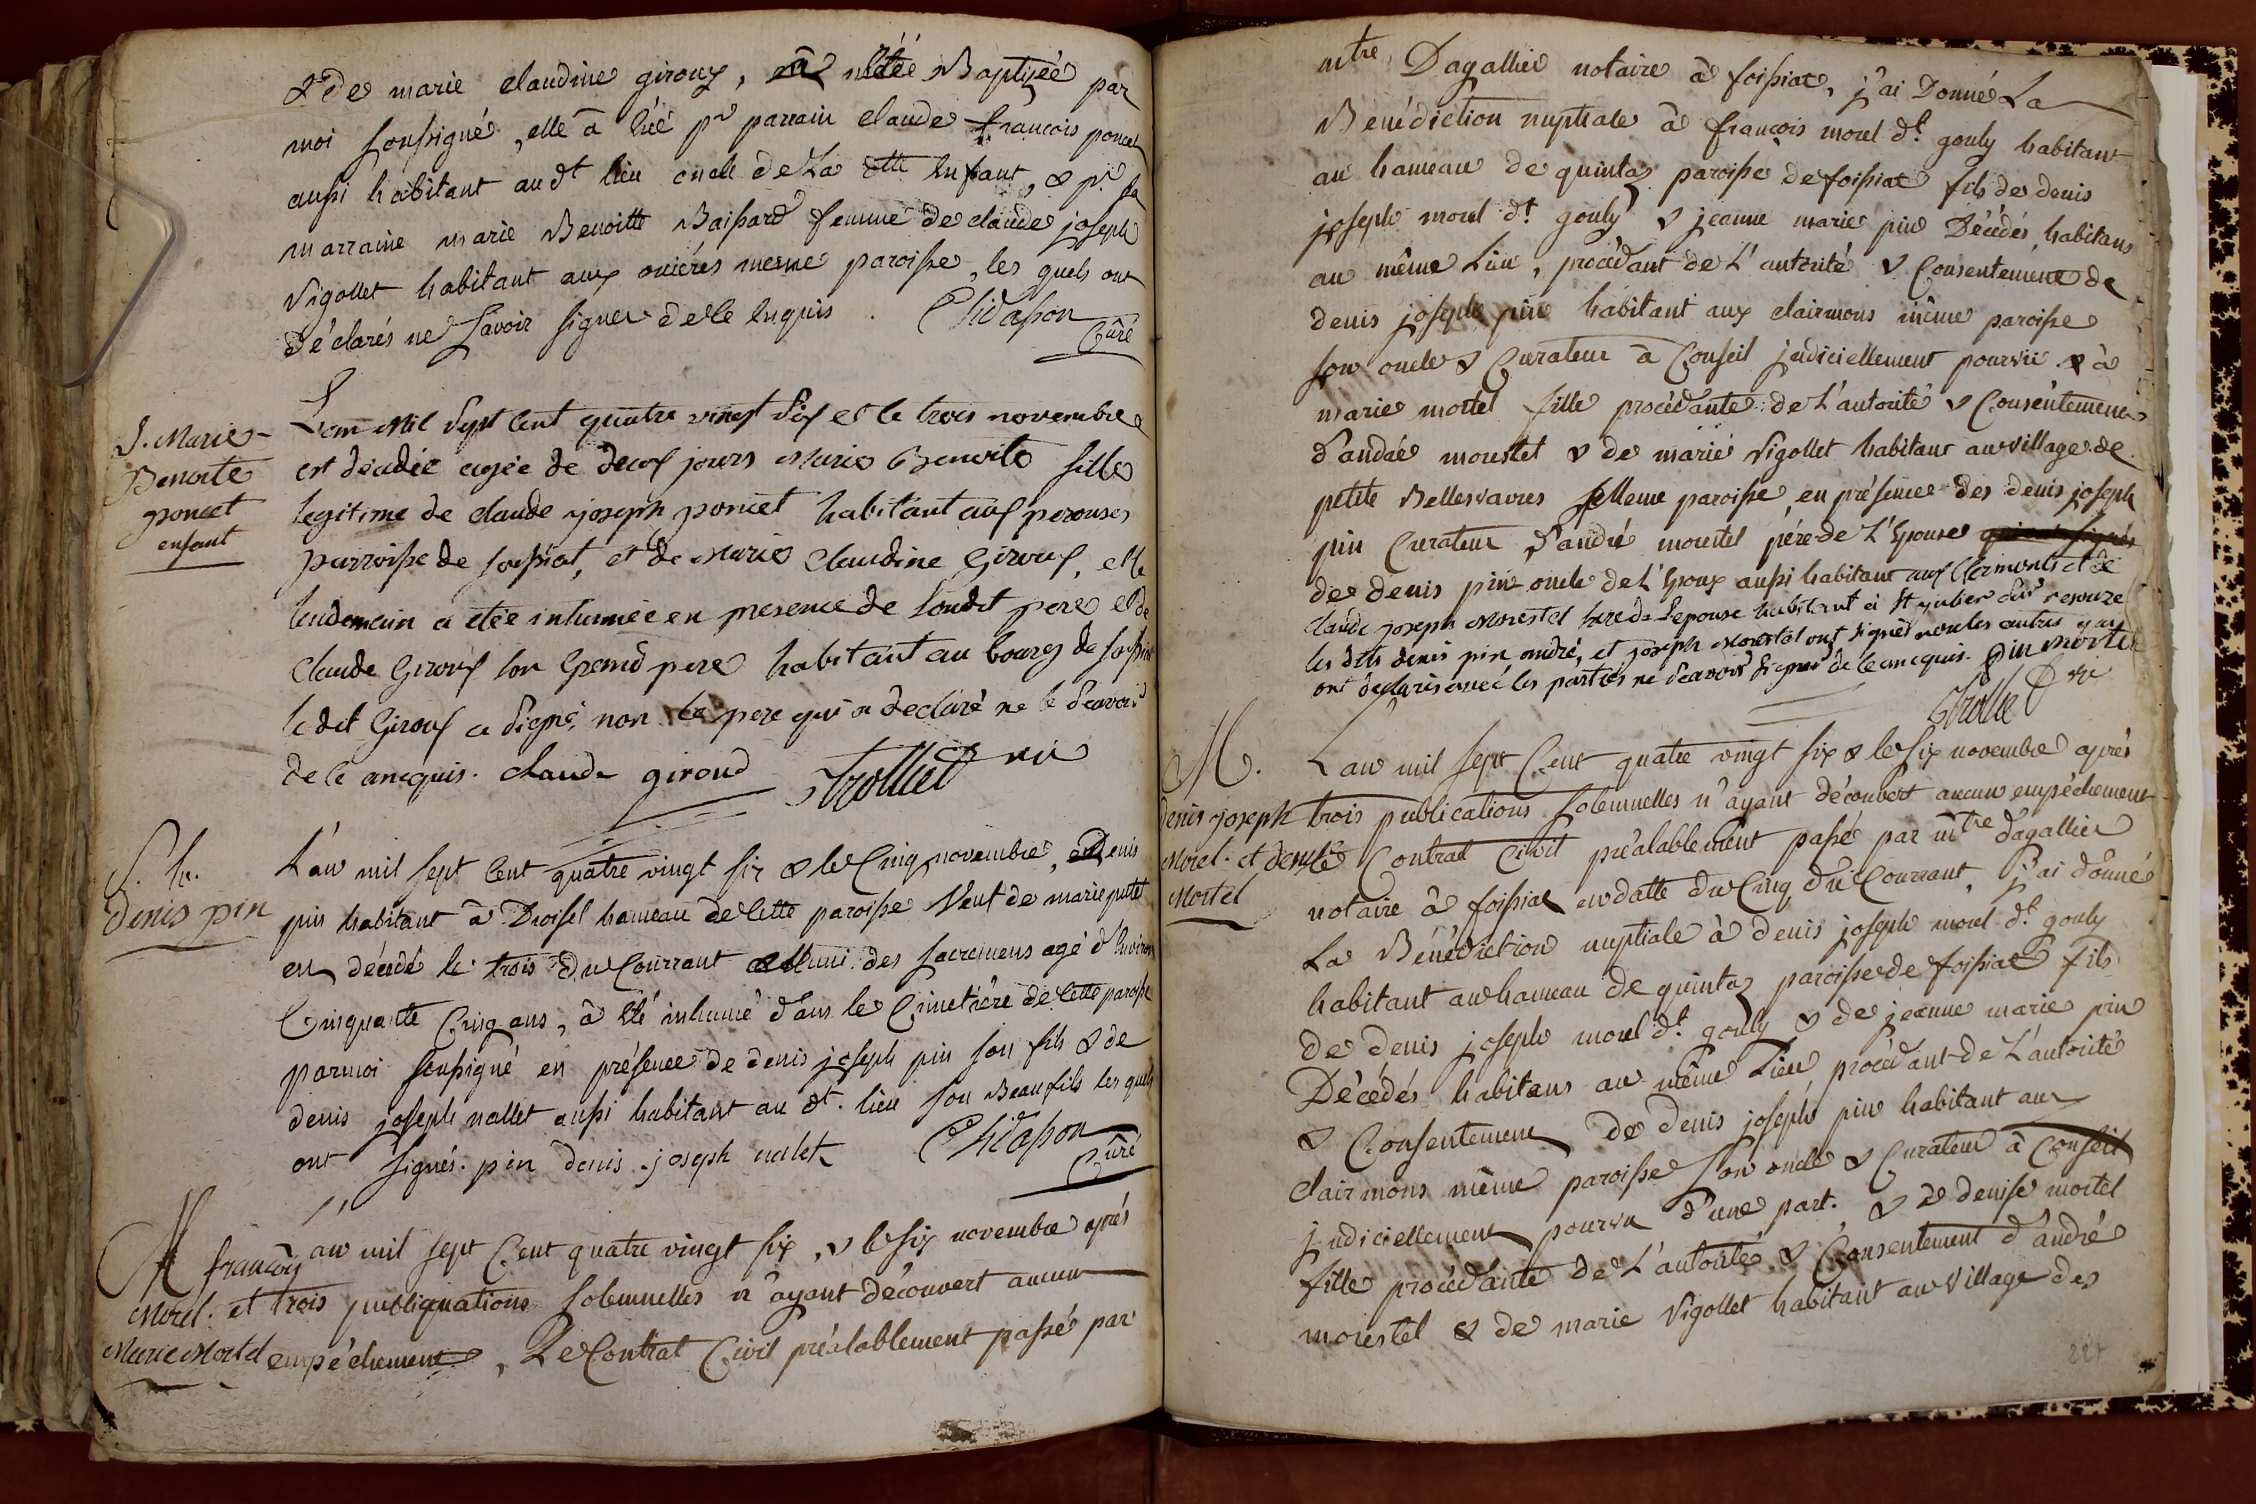 & de marie claudine giroux, a été Baptizée par
moi soussigné, elle à Eüe pr parrain claude françois poncet
aussi habitant audt lieu oncle de La dtte Enfant, & pr sa
marraine marie Benoitte Baissard femme de claude joseph
Vigollet habitant aux oriéres mesme paroisse, les quels ont
déclarés ne Savoir signer de ce Enquis. Chidasson
Curé
S. Marie
Benoite
poncet
enfant
L'an Mil Sept Cent quatre vingt Six et le trois novembre
est décedée agée de deux jours Marie Benoite fille
legitime de claude joseph poncet habitant aux perouses
parroisse de foissiat, et de Marie Claudine Giroux, et le
lendemain a etée inhumée en presence de Sondit pere et de
Claude Giroux son Grand pere habitant au bourg de foissiat
le dit Giroux a Signé, non le pere qui a declaré ne le Scavoir
de ce anequis. claude giroud Trolliet vic
S. h.
Denis pin
L'an mil sept Cent quatre vingt six & le Cinq novembre, Denis
pin habitant à Droisel hameau de Cette paroisse Veuf de marie putet
décédé le trois du Courrant muni des sacremens agé d'Environ
Cinquante Cinq ans, à Eté inhumé dans le Cimetière de Cette paroisse
par moi soussigné en présence de denis joseph pin son fils & de
denis joseph nallet aussi habitant au dt. lieu son Beaufils les quels
ont signés. pin denis joseph nalet Chidasson
Curé
M françois
Morel. et
Marie Mortel
L'an mil sept Cent quatre vingt six, & le six novembre aprés
trois publiquations solemnelles n'ayant découvert aucun
empéchement, Le Contrat Civil préalablement passé par
mtre Dagallier notaire à foissiat, j'ai Donné La
Bénédiction nuptiale à françois morel dt. gouly habitant
au hameau de quintaz paroisse de foissiat fils de denis
joseph morel dt. gouly & jeanne marie pin Décédés, habitans
au même Lieu, procédant de L'autorité & Consentement de
denis joseph pin habitant aux clairmons même paroisse
son oncle & Curateur à Conseil judiciellement pourvü & à
marie mortel fille procédante de L'autorité & Consentement
d'andré morestel & de marie Vigollet habitant au village de
petite Bellesvavres paroisse en présence des denis joseph
pin Curateur, d'andré morestel pére de L'Epouse
de denis pin oncle de L'Epoux aussi habitant aux Clermonts et de
claude joseph Morestel frere de l'epouse habitant à St julien sur resouze
les dits denis pin andré, et joseph Morestel ont signés non les autres qui
ont declarés avec les parties ne Scavoir Signer de ce anequis. pin mortel
Trolliet vic
M.
denis joseph
Morel. et denise
Mortel
L'an mil sept Cent quatre vingt six & le six novembre après
trois publications solemnelles n'ayant découvert aucun empéchement
Le Contrat Civil préalablement passé par mtre dagallier
notaire à foissiat en datte du Cinq du Courrant, j'ai donné
La Bénédiction nuptiale à denis joseph morel dt. gouly
habitant au hameau de quintaz paroisse de foissiat fils
De denis joseph morel dt. gouly & de jeanne marie pin
Décédés habitans au même Lieu procédant de L'autorité
& Consentement de denis joseph pin habitant aux
clairmons même paroisse son oncle & Curateur à Conseil
judiciellement pourvu d'une part. & de denise mortel
fille procédante de L'autorité & Consentement d'andré
morestel & de marie Vigollet habitant au village des